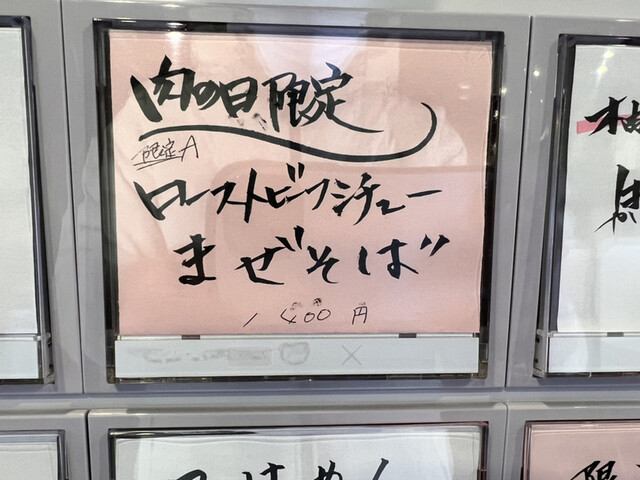 肉の日限定
限定A
ローストビーフシチュー
まぜそば
1400円
×
限